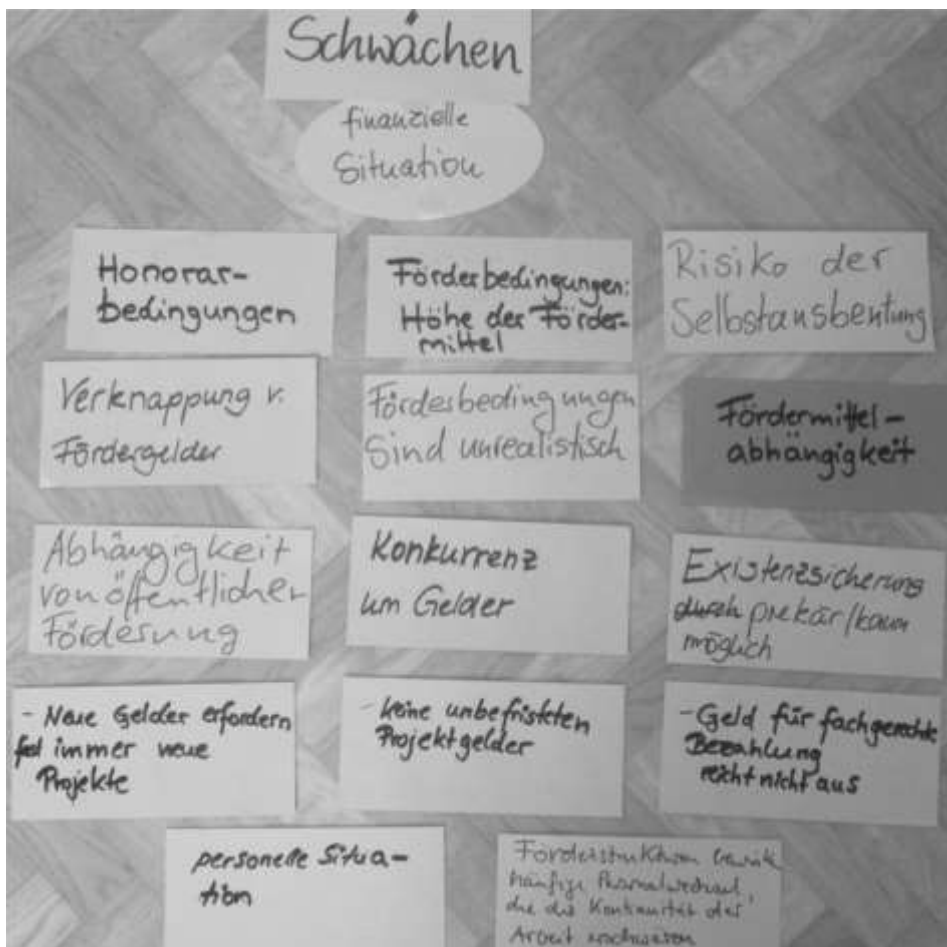 Schwächen
finanzielle
Situation
Honorar-
bedingungen
Förderbedingungen:
Höhe der Förder-
mittel
Risiko der
Selbstausbeutung
Verknappung v.
Fördergelder
Förderbedingungen
sind unrealistisch
Fördermittel-
abhängigkeit
Abhängigkeit
von öffentlicher
Förderung
Konkurrenz
um Gelder
Existenzsicherung
durch prekär/kaum
möglich
- Neue Gelder erfordern
fast immer neue
Projekte
- keine unbefristeten
Projektgelder
- Geld für fachgerechte
Bezahlung
reicht nicht aus
personelle Situa-
tion
Förderstrukturen
häufige Personalwechsel,
die die Kontinuität der
Arbeit erschweren